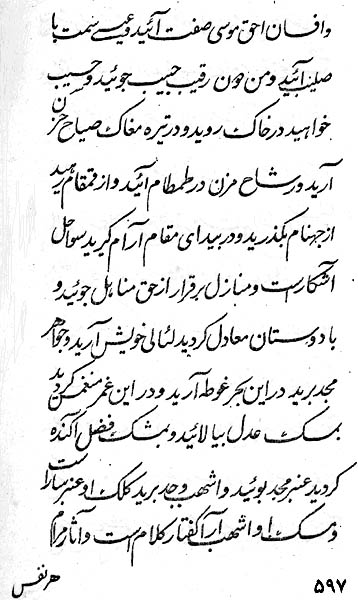 و افسان احق موسی صفت آئید و عیسی سمت با
صلیب آئید و من دون رقیب حبیب جوئید و حسیب
خواهید در خاک روید و در تیره مغاک صیاح حزن
آرید و رشاح مزن در طمطام آئید و از قمقام رهید
از جهنام بگذرید و در بیدای مقام آرام گیرید سواحل
آشکار است و منازل برقرار از حق مناهل جوئید و
با دوستان معادل گردید لئالی خویش آرید و جواهر
مجد برید در این بحر غوطه آرید و در این غمر منغمس گردید
بمسک عدل بیالائید و بمشک فضل آکنده
گردید عنبر مجد بوئید و اشهب وجد برید کلک او عنبر سارا است
و مسک او اشهب آرا گفتار کلام است و آثار مرام
هر نفس
۵۹۷